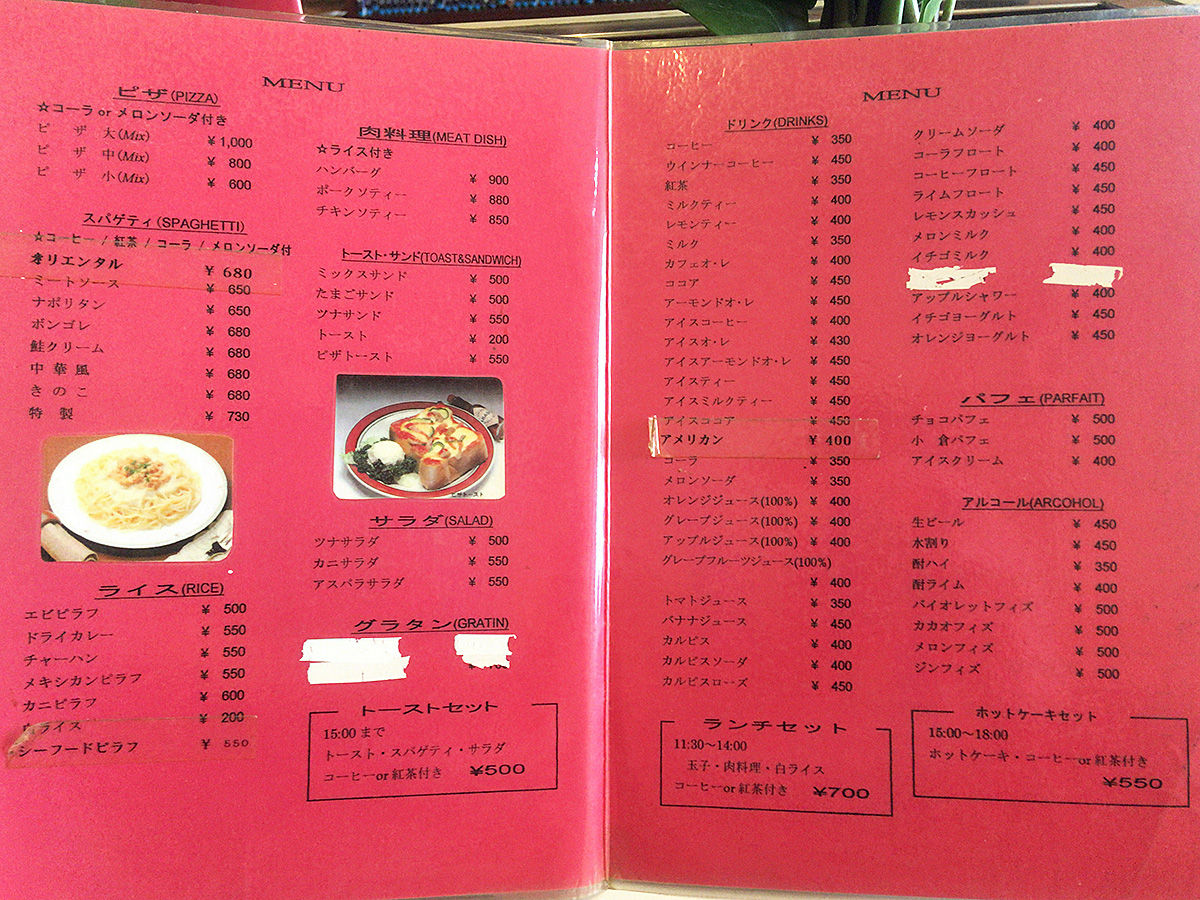 MENU
ピザ(PIZZA)
☆コーラ or メロンソーダ付き
ピザ 大(Mix) ¥1,000
ピザ 中(Mix) ¥ 800
ピザ 小(Mix) ¥ 600
スパゲティ(SPAGHETTI)
☆コーヒー / 紅茶 / コーラ / メロンソーダ付
オリエンタル ¥ 680
ミートソース ¥ 650
ナポリタン ¥ 650
ボンゴレ ¥ 680
鮭クリーム ¥ 680
中華風 ¥ 680
きのこ ¥ 680
特製 ¥ 730
ライス(RICE)
エビピラフ ¥ 500
ドライカレー ¥ 550
チャーハン ¥ 550
メキシカンピラフ ¥ 550
カニピラフ ¥ 600
白ライス ¥ 200
シーフードピラフ ¥ 550
肉料理(MEAT DISH)
☆ライス付き
ハンバーグ ¥ 900
ポークソティー ¥ 880
チキンソティー ¥ 850
トースト・サンド(TOAST&SANDWICH)
ミックスサンド ¥ 500
たまごサンド ¥ 500
ツナサンド ¥ 550
トースト ¥ 200
ピザトースト ¥ 550
ピザトースト
サラダ(SALAD)
ツナサラダ ¥ 500
カニサラダ ¥ 550
アスパラサラダ ¥ 550
グラタン(GRATIN)
トーストセット
15:00 まで
トースト・スパゲティ・サラダ
コーヒーor 紅茶付き ¥500
MENU
ドリンク(DRINKS)
コーヒー ¥ 350
ウインナーコーヒー ¥ 450
紅茶 ¥ 350
ミルクティー ¥ 400
レモンティー ¥ 400
ミルク ¥ 350
カフェオ・レ ¥ 400
ココア ¥ 450
アーモンドオ・レ ¥ 450
アイスコーヒー ¥ 400
アイスオ・レ ¥ 430
アイスアーモンドオ・レ ¥ 450
アイスティー ¥ 450
アイスミルクティー ¥ 450
アイスココア ¥ 450
アメリカン ¥ 400
コーラ ¥ 350
メロンソーダ ¥ 350
オレンジジュース(100%) ¥ 400
グレープジュース(100%) ¥ 400
アップルジュース(100%) ¥ 400
グレープフルーツジュース(100%)
¥ 400
トマトジュース ¥ 350
バナナジュース ¥ 450
カルピス ¥ 400
カルピスソーダ ¥ 400
カルピスローズ ¥ 450
ランチセット
11:30～14:00
玉子・肉料理・白ライス
コーヒーor 紅茶付き ¥700
クリームソーダ ¥ 400
コーラフロート ¥ 400
コーヒーフロート ¥ 450
ライムフロート ¥ 450
レモンスカッシュ ¥ 450
メロンミルク ¥ 400
イチゴミルク ¥ 400
アップルシャワー ¥ 400
イチゴヨーグルト ¥ 450
オレンジヨーグルト ¥ 450
パフェ(PARFAIT)
チョコパフェ ¥ 500
小倉パフェ ¥ 500
アイスクリーム ¥ 400
アルコール(ARCOHOL)
生ビール ¥ 450
水割り ¥ 450
酎ハイ ¥ 350
酎ライム ¥ 400
バイオレットフィズ ¥ 500
カカオフィズ ¥ 500
メロンフィズ ¥ 500
ジンフィズ ¥ 500
ホットケーキセット
15:00～18:00
ホットケーキ・コーヒーor 紅茶付き
¥550